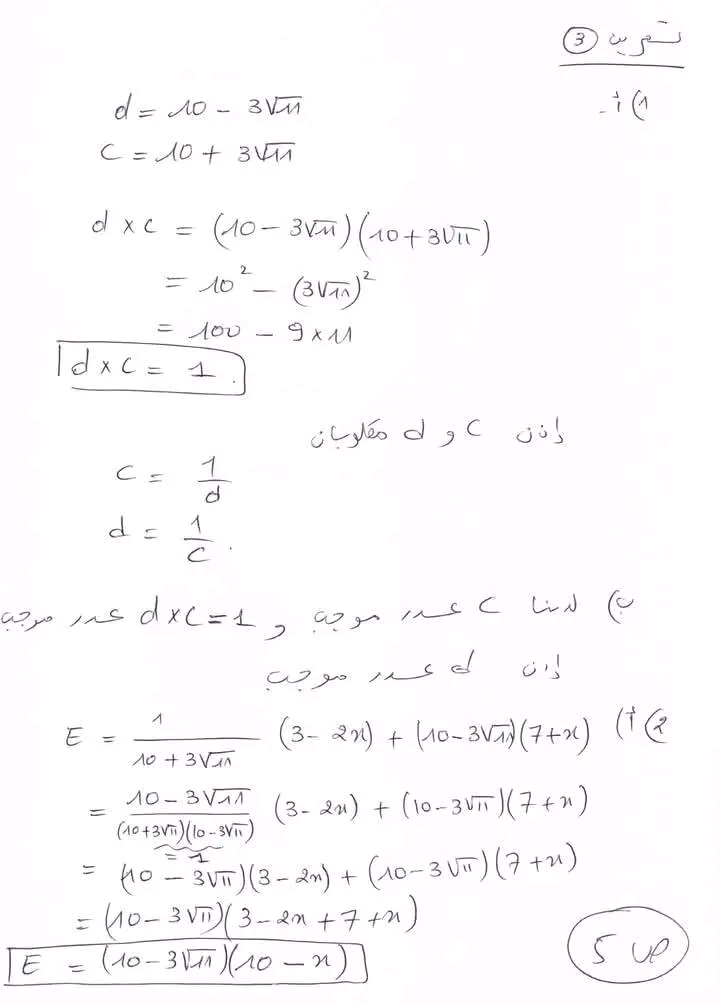 تمرين 3
1) أ-
d = 10 - 3√11
c = 10 + 3√11
d × c = (10 - 3√11)(10 + 3√11)
= 10² - (3√11)²
= 100 - 9 × 11
d × c = 1.
إذن c و d مقلوبان
c = 1/d
d = 1/c.
ب) لدينا c عدد موجب و d×c=1 عدد موجب
إذن d عدد موجب
2) أ) E = 1/(10 + 3√11) (3 - 2x) + (10 - 3√11)(7 + x)
= (10 - 3√11)/((10+3√11)(10-3√11)) (3 - 2x) + (10 - 3√11)(7 + x)
= 1
= (10 - 3√11)(3 - 2x) + (10 - 3√11)(7 + x)
= (10 - 3√11)(3 - 2x + 7 + x)
E = (10 - 3√11)(10 - x)
ص 5